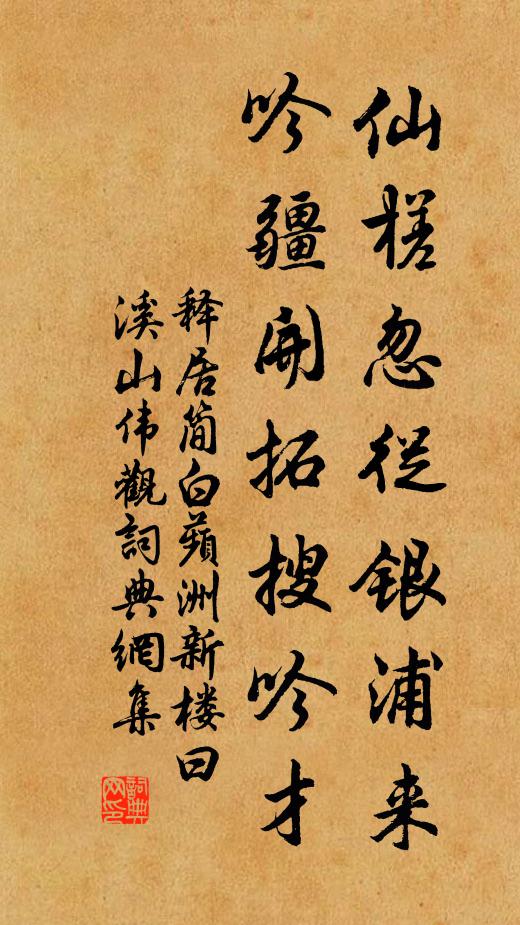 仙槎忽從银浦来
吟疆开拓搜吟才
释居简白蘋洲新楼曰
溪山伟觀詞典網集
詞典网印